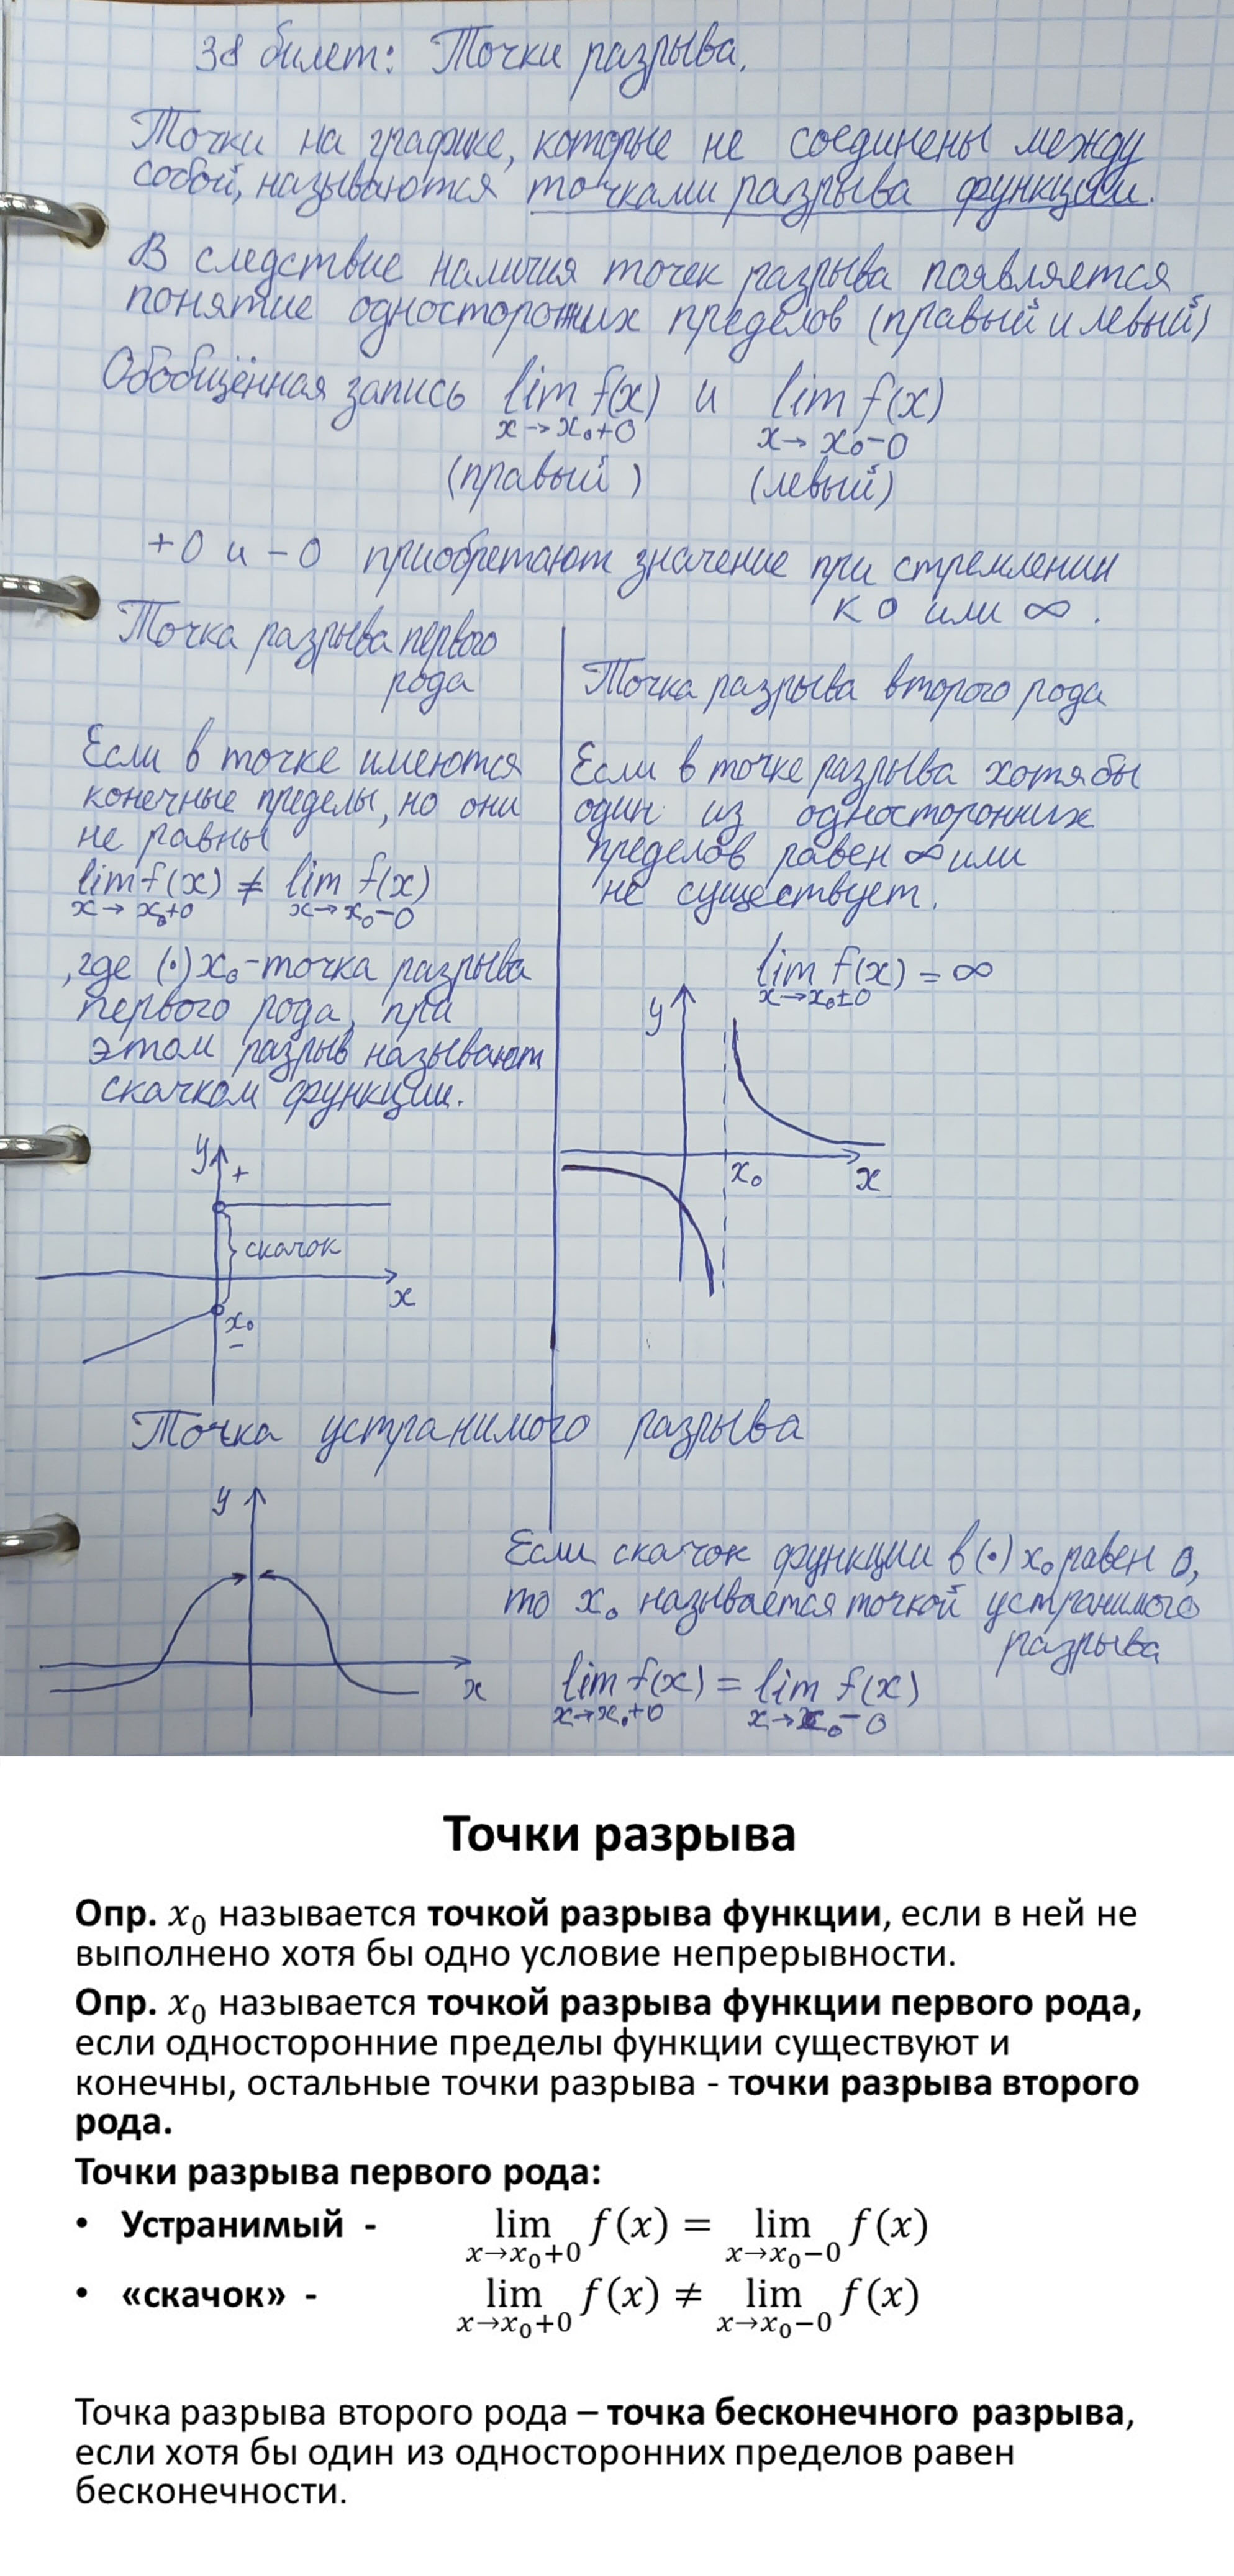 38 билет: Точки разрыва.
Точки на графике, которые не соединены между
собой, называются точками разрыва функции.
В следствие наличия точек разрыва появляется
понятие односторонних пределов (правый и левый)
Обобщённая запись lim f(x) и lim f(x)
x→x₀+0 x→x₀-0
(правый) (левый)
+0 и -0 приобретают значение при стремлении
к 0 или ∞.
Точка разрыва первого
рода
Если в точке имеются
конечные пределы, но они
не равны
lim f(x) ≠ lim f(x)
x→x₀+0 x→x₀-0
,где (·) x₀-точка разрыва
первого рода, при
этом разрыв называют
скачком функции.
y
+
скачок
x
x₀
-
Точка разрыва второго рода
Если в точке разрыва хотя бы
один из односторонних
пределов равен ∞ или
не существует.
lim f(x) = ∞
x→x₀±0
y
x₀
x
Точка устранимого разрыва
y
x
Если скачок функции в (·) x₀ равен 0,
то x₀ называется точкой устранимого
разрыва
lim f(x) = lim f(x)
x→x₀+0 x→x₀-0
Точки разрыва
Опр. x₀ называется точкой разрыва функции, если в ней не
выполнено хотя бы одно условие непрерывности.
Опр. x₀ называется точкой разрыва функции первого рода,
если односторонние пределы функции существуют и
конечны, остальные точки разрыва - точки разрыва второго
рода.
Точки разрыва первого рода:
• Устранимый - lim f(x) = lim f(x)
x→x₀+0 x→x₀-0
• «скачок» - lim f(x) ≠ lim f(x)
x→x₀+0 x→x₀-0
Точка разрыва второго рода – точка бесконечного разрыва,
если хотя бы один из односторонних пределов равен
бесконечности.